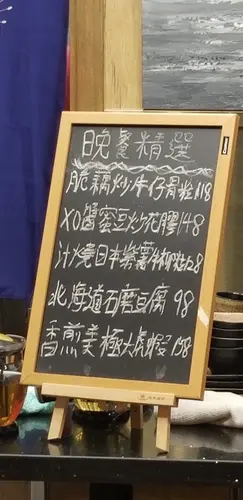 晚餐精選
脆藕炒牛仔骨粒118
XO醬蜜豆炒花膠148
汁燒日本紫薯牛柳粒128
北海道石磨豆腐 98
香煎美極大虎蝦 138